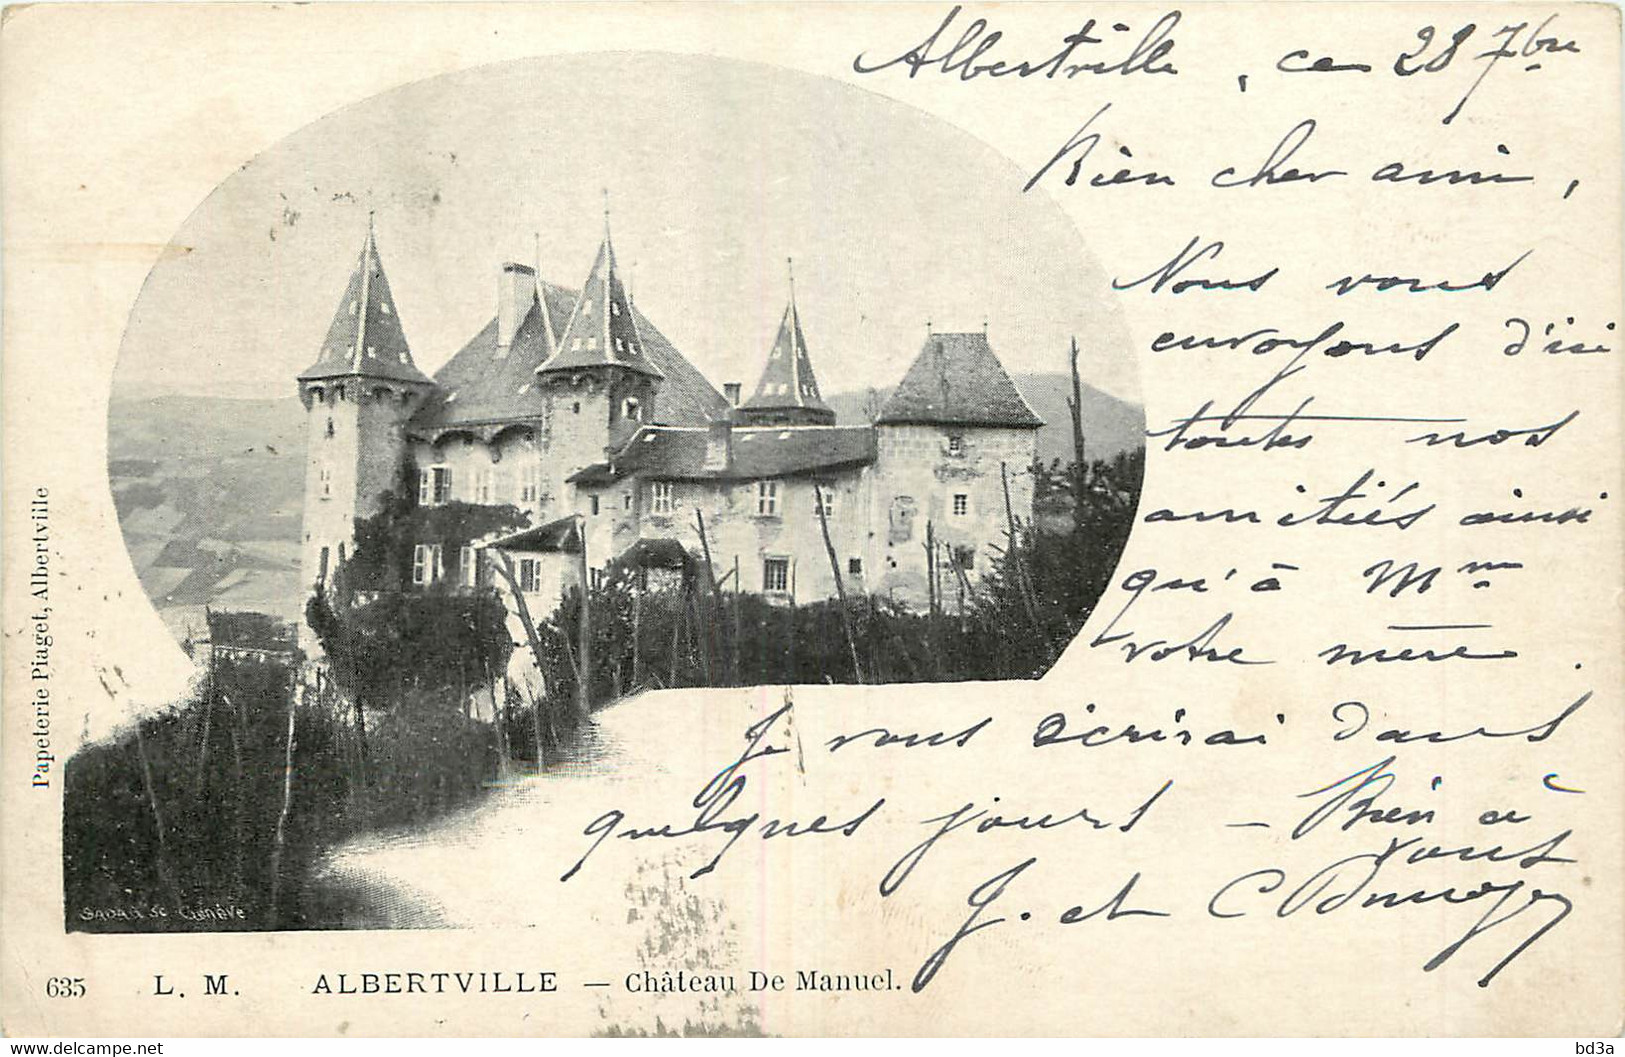 Albertville, ce 28 7bre
Bien cher ami,
Nous vous
envoyons d'ici
toutes nos
amitiés ainsi
qu'à Mme
votre mère.
Je vous écrirai dans
quelques jours — Bien à
vous
J. et C
Papeterie Piaget, Albertville
SADAG SC Genève
635 L. M. ALBERTVILLE — Château De Manuel.
delcampe.net
bd3a